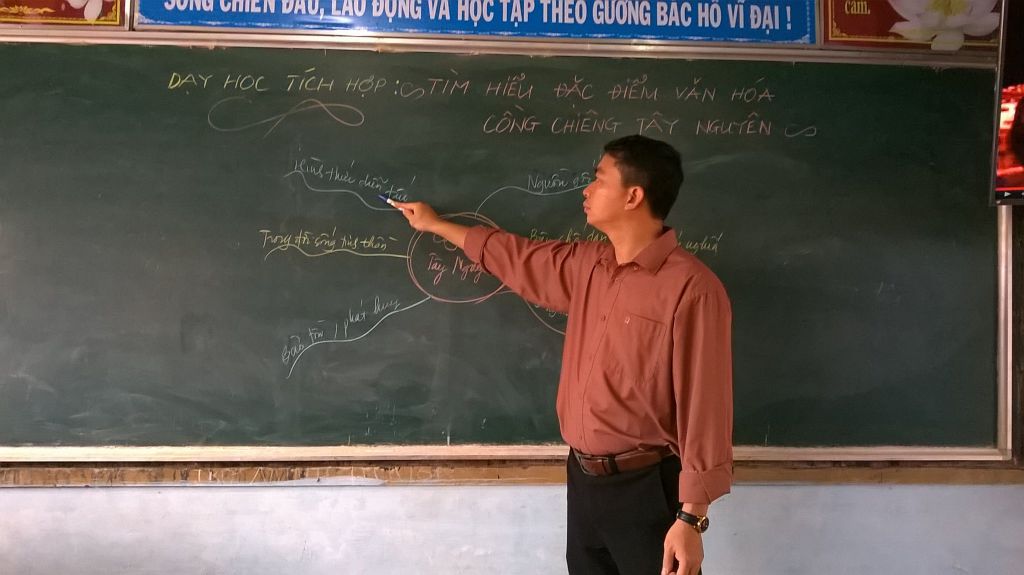 SỐNG CHIẾN ĐẤU, LAO ĐỘNG VÀ HỌC TẬP THEO GƯƠNG BÁC HỒ VĨ ĐẠI !
cảm.
DẠY HỌC TÍCH HỢP : TÌM HIỂU ĐẶC ĐIỂM VĂN HÓA
CỒNG CHIÊNG TÂY NGUYÊN
Hình thức diễn tấu
Nguồn gốc
Trong đời sống tinh thần
nghĩa
Tây Nguy
Bảo tồn, phát huy